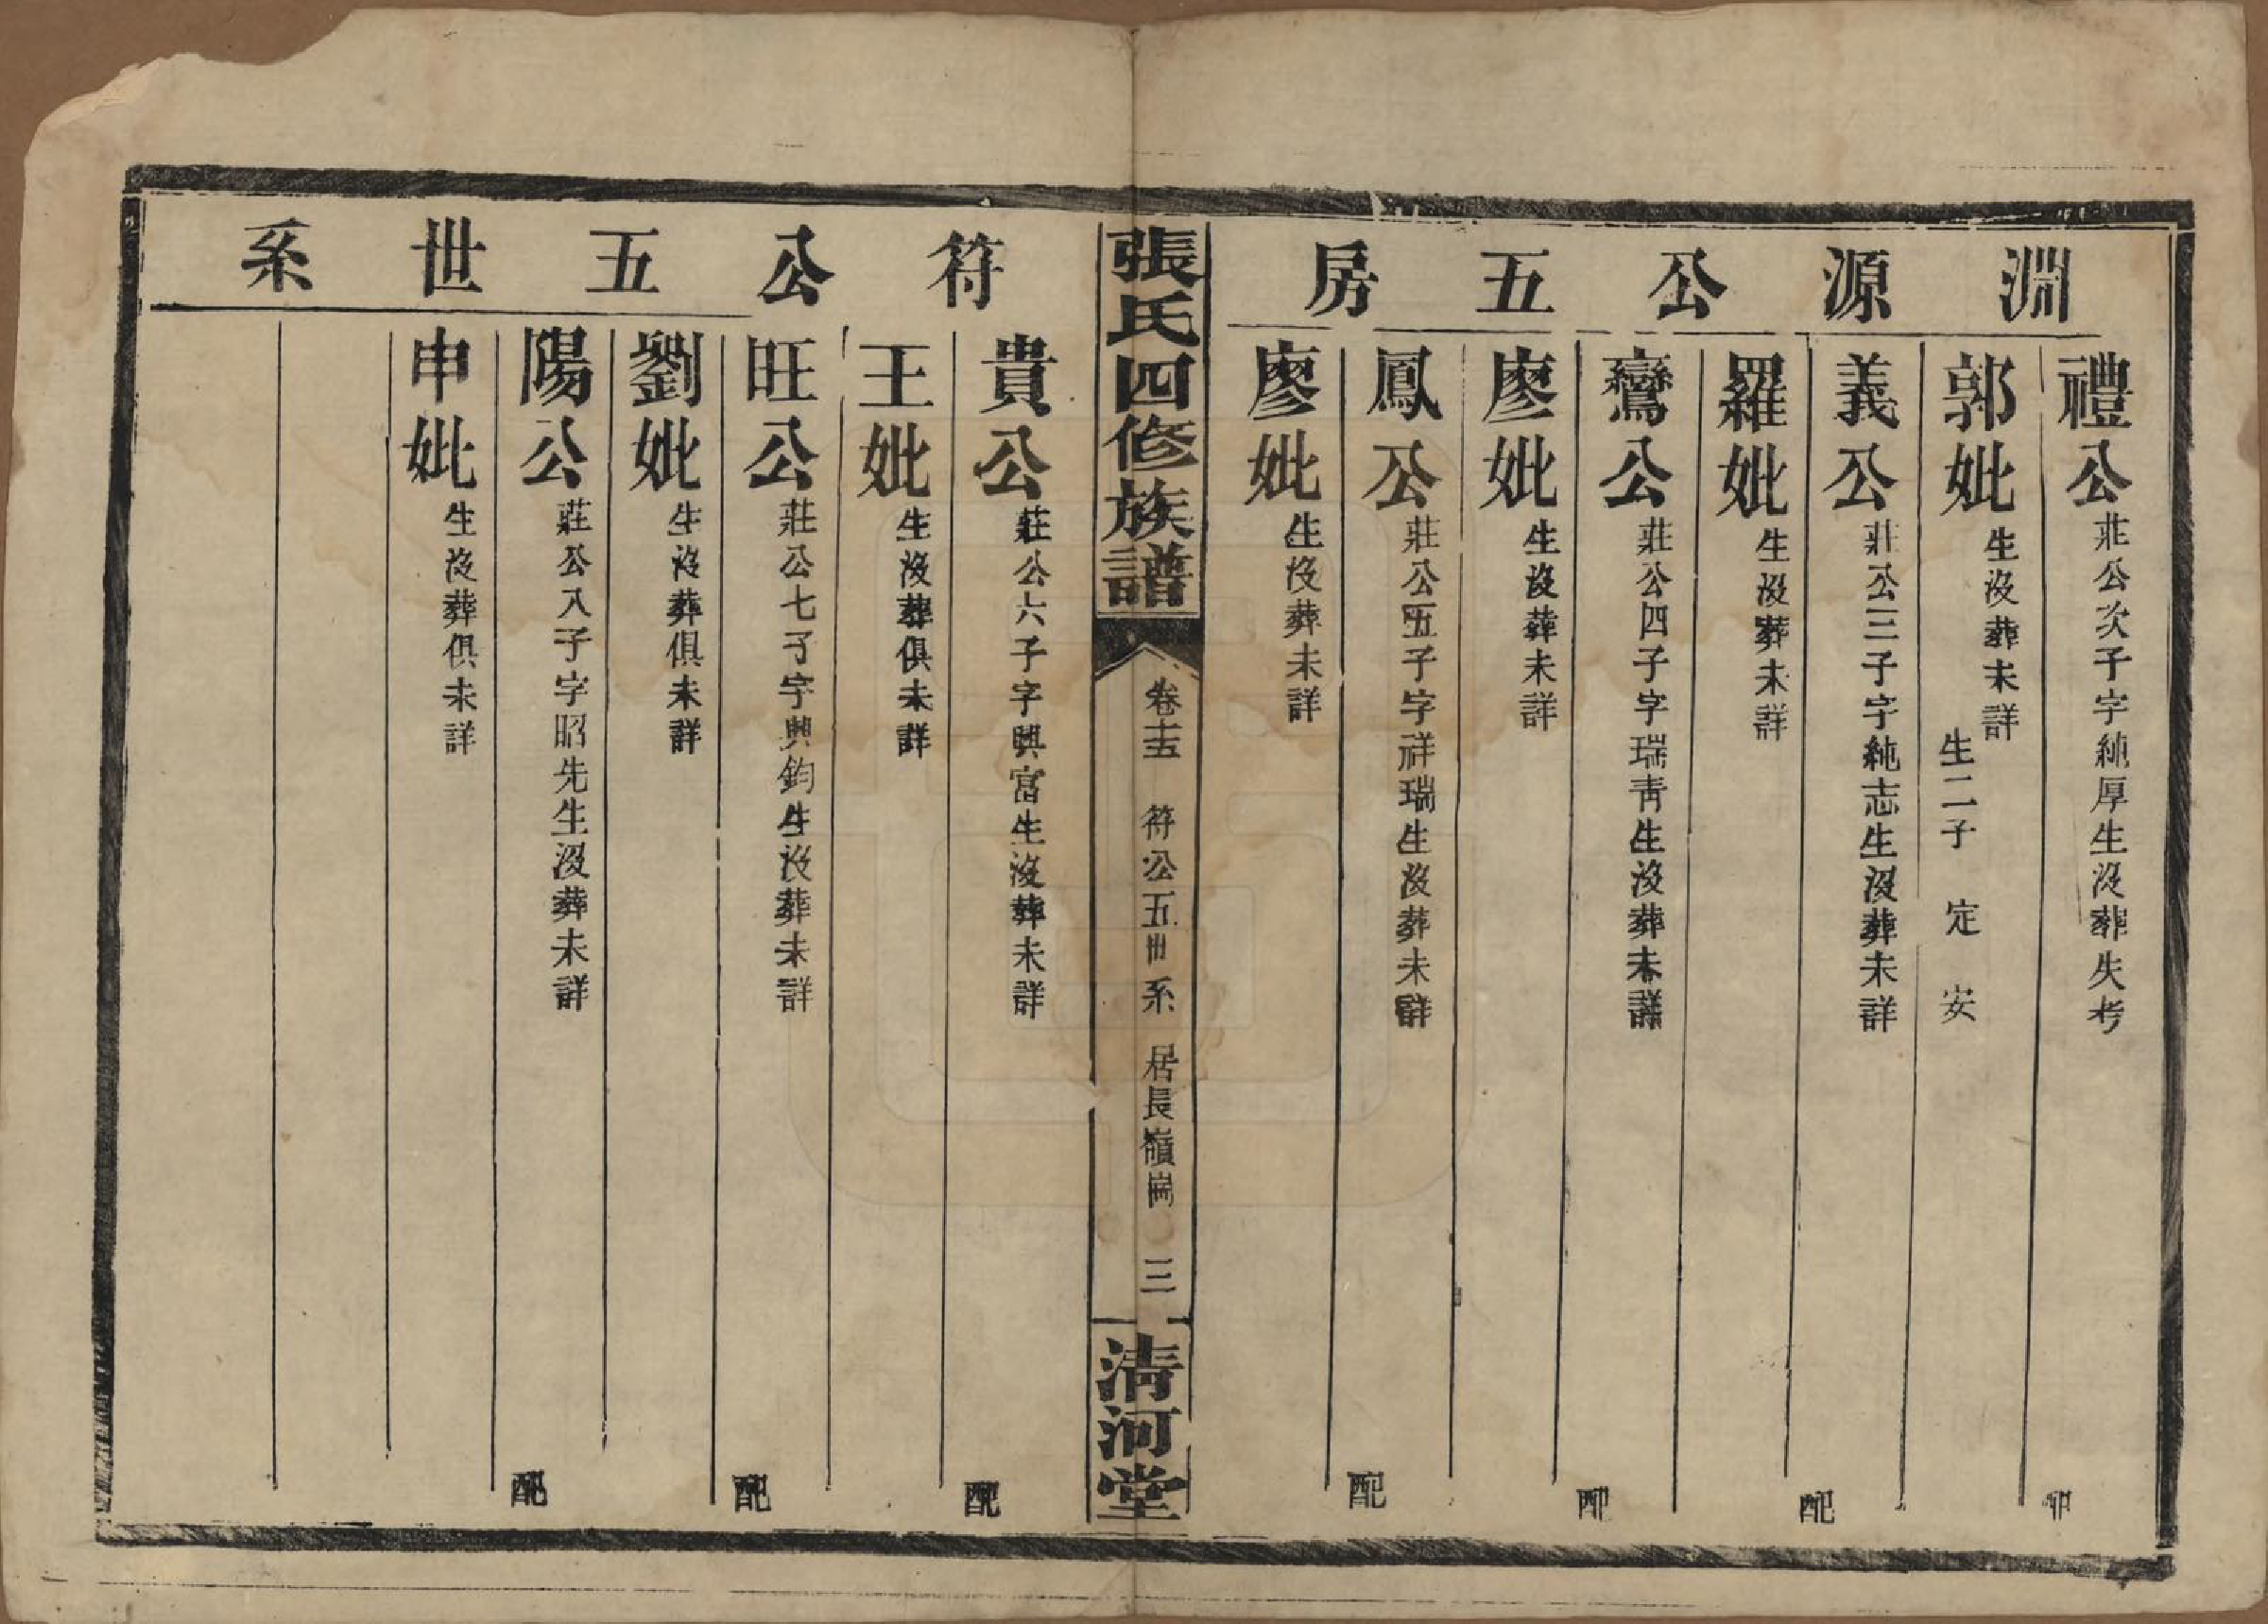 淵源公五房
禮公 莊公次子字純厚生沒葬失考 配
郭妣 生沒葬未詳 生二子 定 安
義公 莊公三子字純志生沒葬未詳 配
羅妣 生沒葬未詳
鸞公 莊公四子字瑞靑生沒葬未詳 配
廖妣 生沒葬未詳
鳳公 莊公五子字祥瑞生沒葬未詳 配
廖妣 生沒葬未詳
張氏四修族譜 卷十五 符公五世系 居長嶺 三 淸河堂
符公五世系
貴公 莊公六子字興富生沒葬未詳 配
王妣 生沒葬俱未詳
旺公 莊公七子字興鈞生沒葬未詳 配
劉妣 生沒葬俱未詳
陽公 莊公八子字昭先生沒葬未詳 配
申妣 生沒葬俱未詳